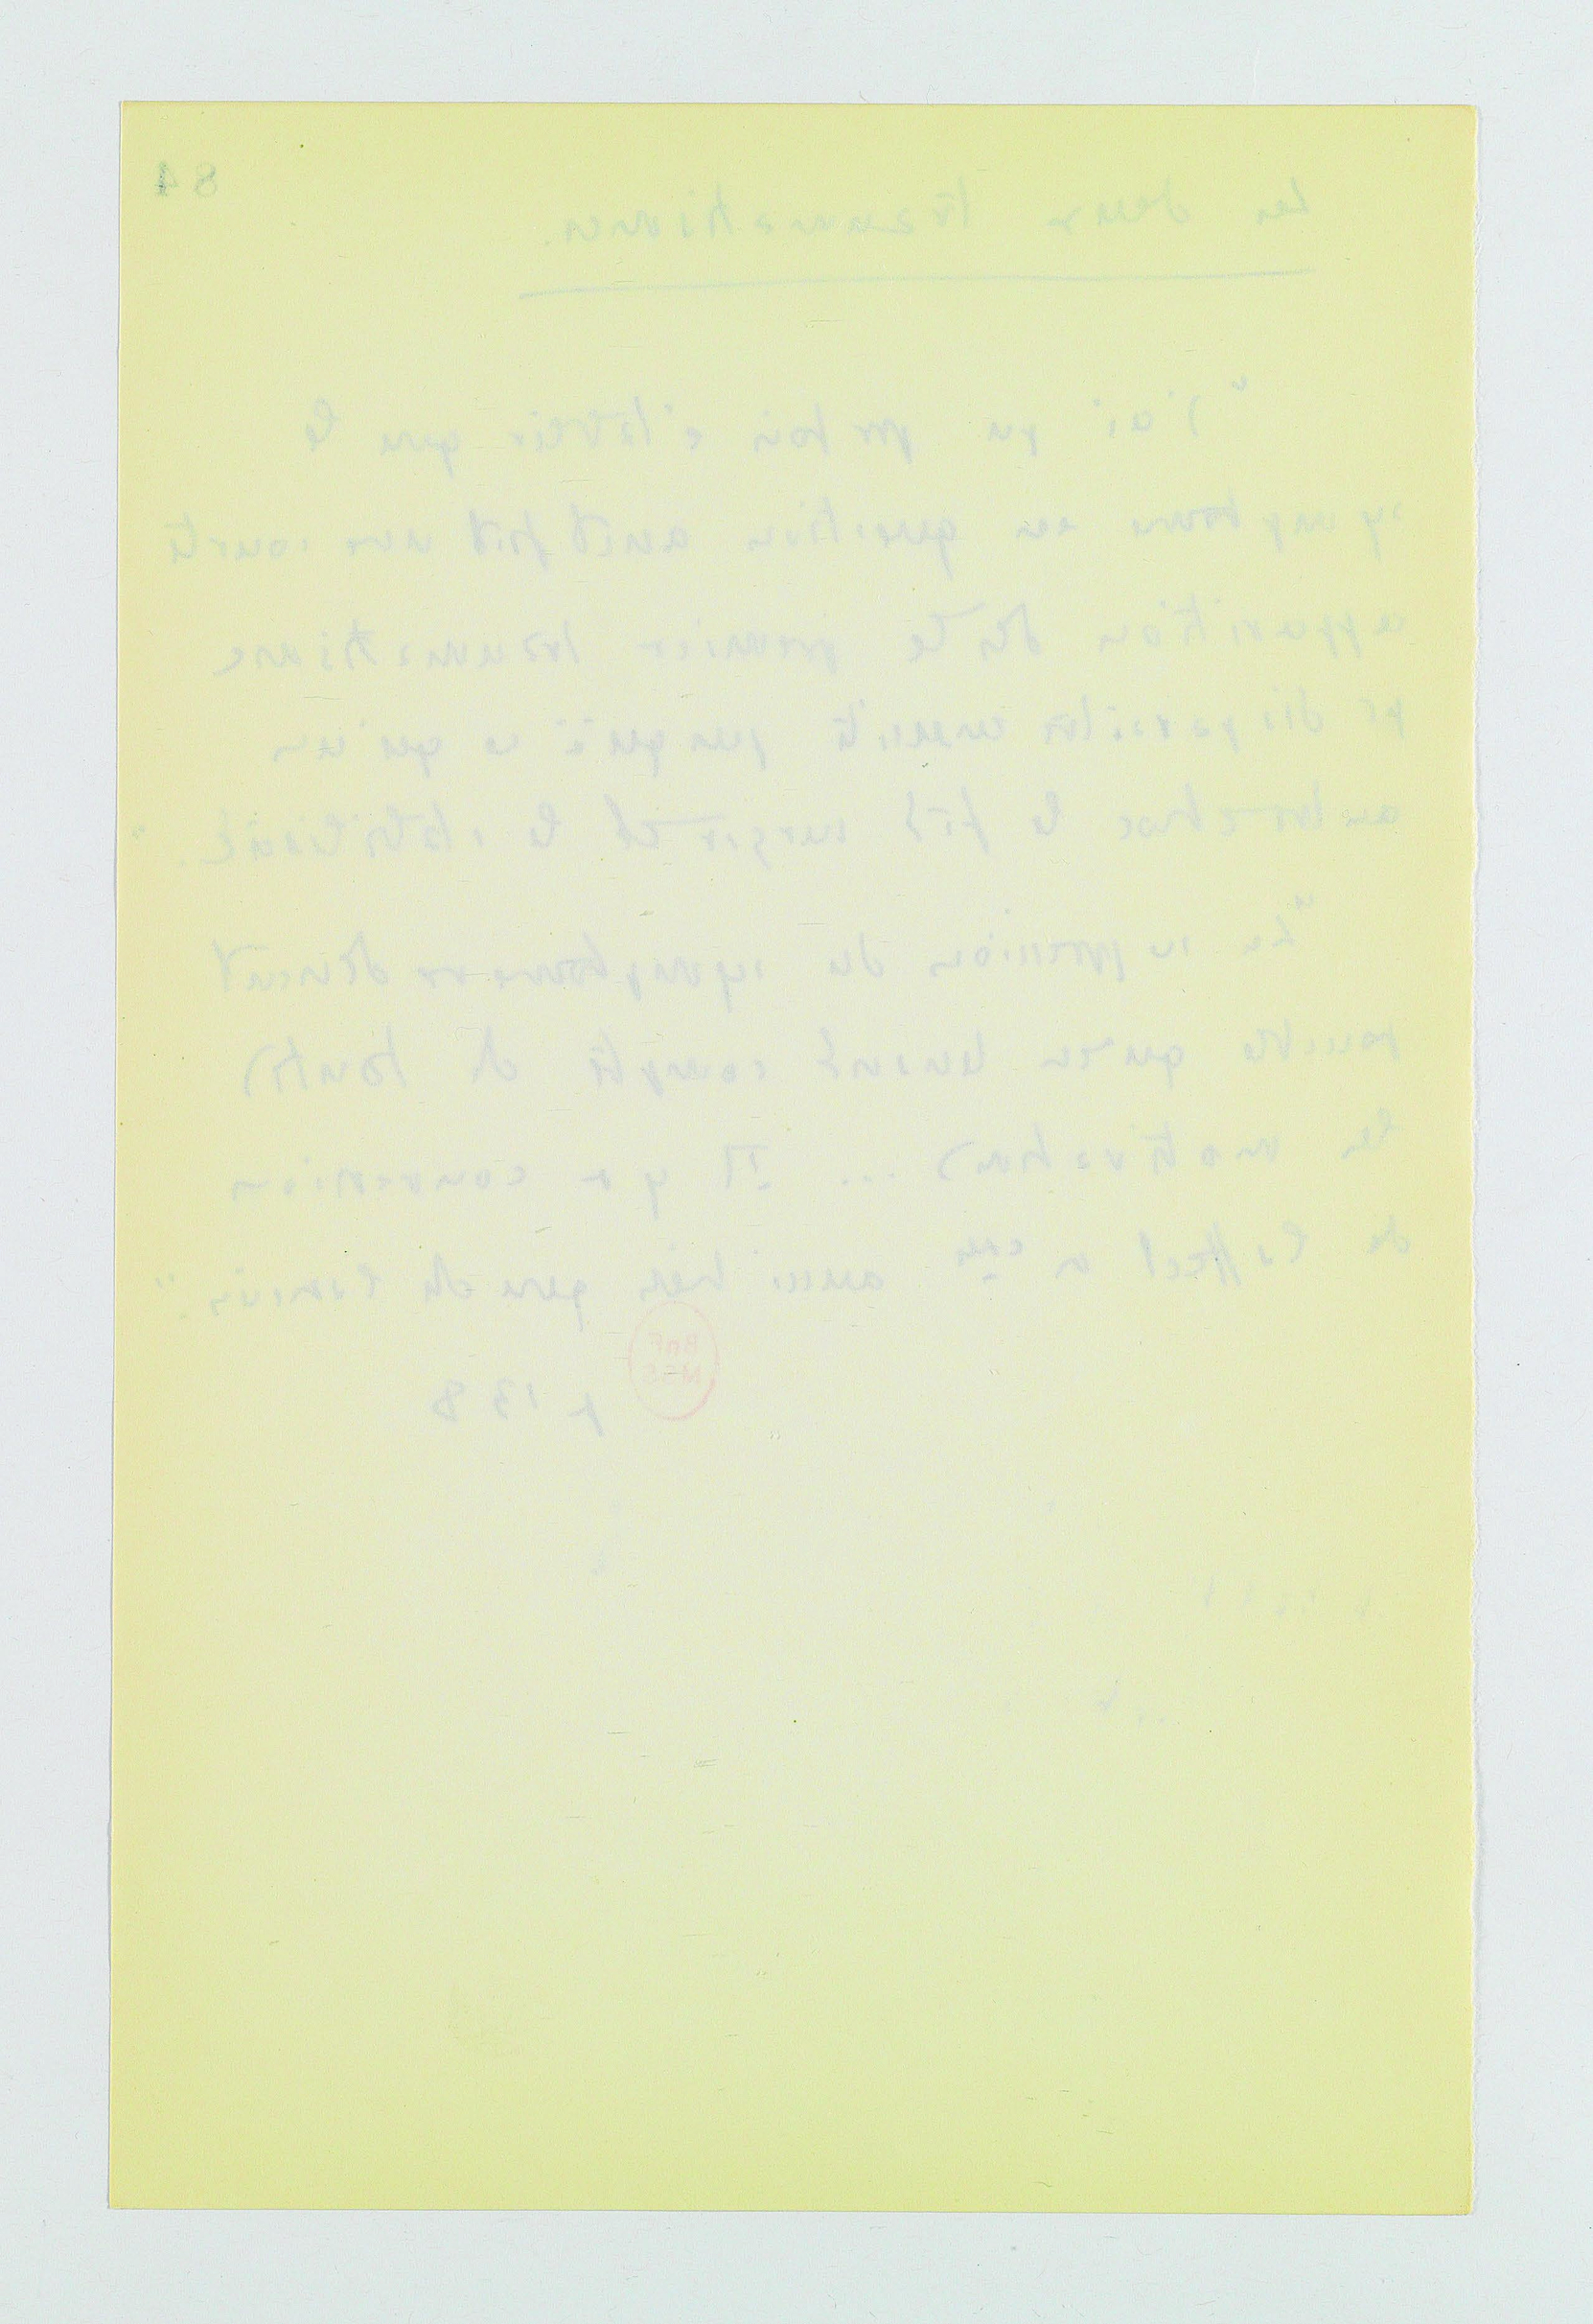 84
Les deux traumatismes.
"J'ai pu parfois établir que le
symptome en question avait fait une courte
apparition dès le premier traumatisme
pr disparaître ensuite jusqu'à ce qu'un
autre choc le fit surgir et le stabilisât."
"La suppression du symptome ne devient
possible qu'en tenant compte de toutes
les motivations ... Il y a conversion
de l'affect aussi bien que de
BnF
MSS
p 138